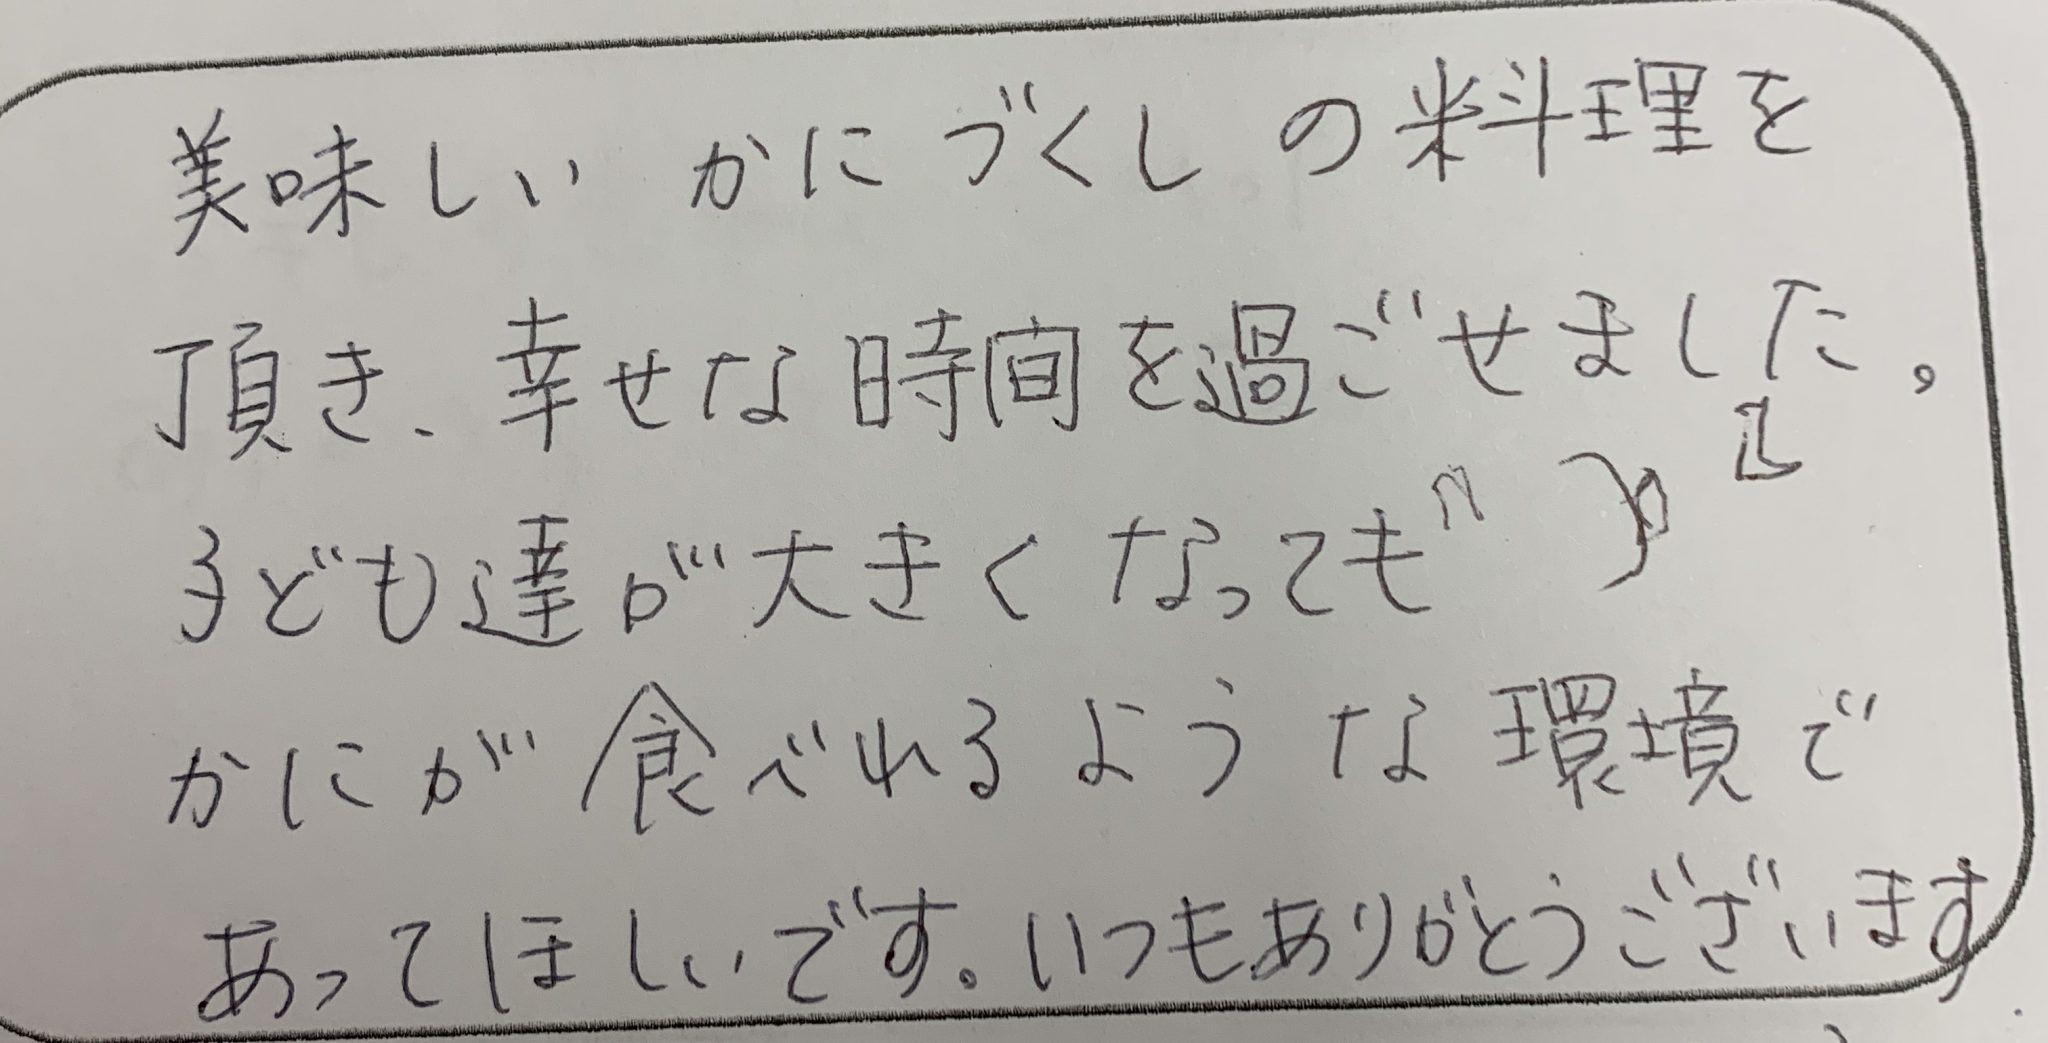 美味しい かにづくしの料理を
頂き、幸せな時間を過ごせました。
子ども達が大きくなっても
かにが食べれるような環境で
あってほしいです。いつもありがとうございます